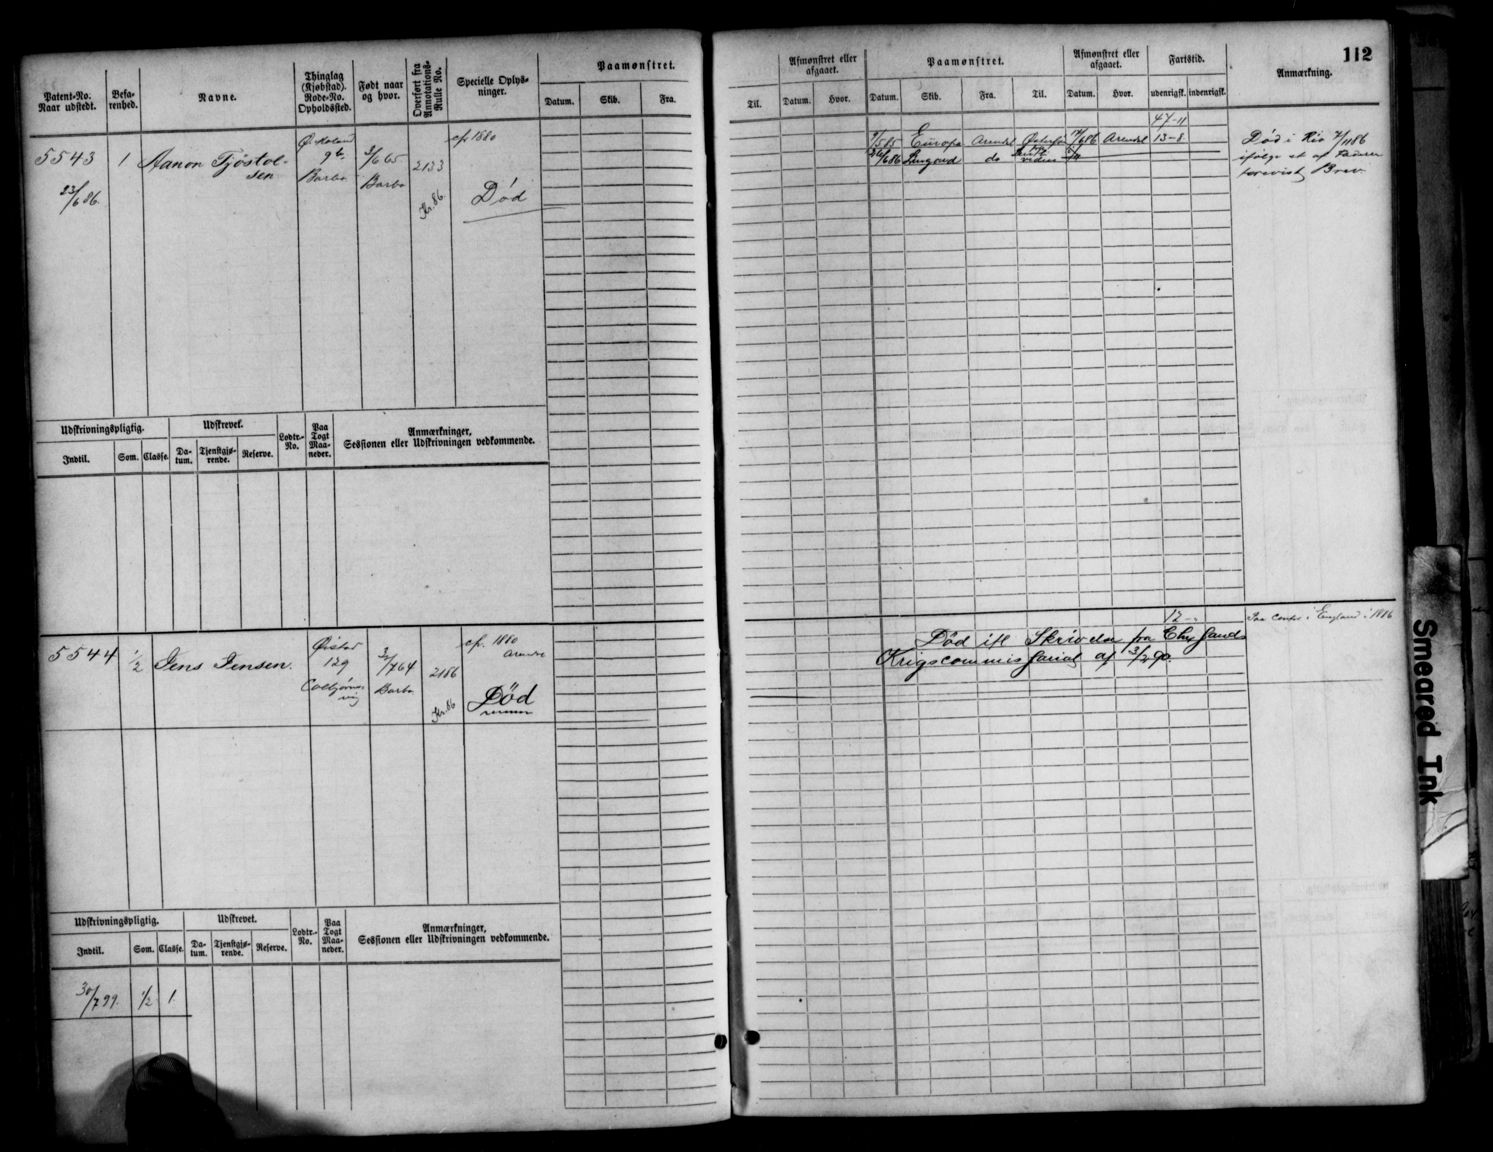 112
Patent-No.
Naar udstedt.
Befa-
renhed.
Navne.
Thinglag
(Kjøbstad).
Rode-No.
Opholdssted.
Født naar
og hvor.
Overført fra
Annotations-
Rulle No.
Specielle Oplys-
ninger.
Paamønstret.
Datum. Skib. Fra.
Afmønstret eller
afgaaet.
Til. Datum. Hvor.
Paamønstret.
Datum. Skib. Fra. Til.
Afmønstret eller
afgaaet.
Datum. Hvor.
Fartstid.
udenrigsk. indenrigsk.
Anmærkning.
5543
23/6 86.
1
Aanon Tjøstol-
sen
9b.
Barbo
3/6 65
Barbo
2133
Kr. 86
cf. 1880
Død
47-11
Europa Arendal Arendal 13-8
do
Død i Rio 7/11 86
ifølge et af Faderen
forevist Brev.
Udskrivningspligtig.
Indtil. Som. Classe.
Udskrevet.
Da-
tum.
Tjenstgjø-
rende.
Reserve.
Lodtr.-
No.
Paa
Togt
Maa-
neder.
Anmærkninger,
Sessionen eller Udskrivningen vedkommende.
5544
1/2
Jens Jensen.
Øistad
129
Barbo
2186
Kr. 86
cf. 1880
Død
12
i England i 1886
Død ifl Skrivelse fra Chr sands
Krigscommissariat af 3/2 90.
Udskrivningspligtig.
Indtil. Som. Classe.
Udskrevet.
Da-
tum.
Tjenstgjø-
rende.
Reserve.
Lodtr.-
No.
Paa
Togt
Maa-
neder.
Anmærkninger,
Sessionen eller Udskrivningen vedkommende.
30/7 99. 1/2 1
Smeared Ink